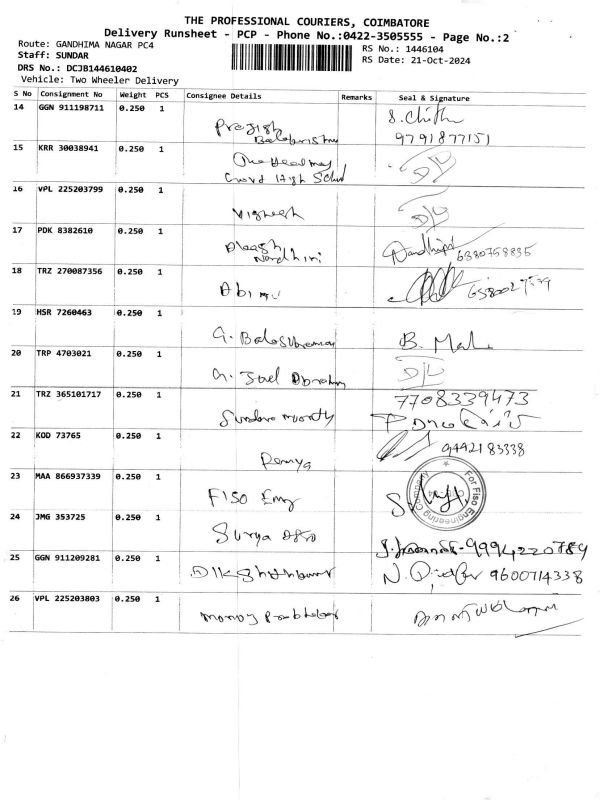 THE PROFESSIONAL COURIERS, COIMBATORE
Delivery Runsheet - PCP - Phone No.:0422-3505555 - Page No.:2
Route: GANDHIMA NAGAR PC4
Staff: SUNDAR
DRS No.: DCJB144610402
Vehicle: Two Wheeler Delivery
RS No.: 1446104
RS Date: 21-Oct-2024
S No Consignment No Weight PCS Consignee Details Remarks Seal & Signature
14 GGN 911198711 0.250 1 S. Chithu
9791877151
15 KRR 30038941 0.250 1 D/L
High
16 VPL 225203799 0.250 1 Vignesh D/L
17 PDK 8382610 0.250 1 Nandhini 6380758835
18 TRZ 270087356 0.250 1
19 HSR 7260463 0.250 1 G. B.
20 TRP 4703021 0.250 1 D/L
21 TRZ 365101717 0.250 1 7708339473
22 KOD 73765 0.250 1 Ramya 9442183338
23 MAA 866937339 0.250 1 FISO Eng
For Fiso Engineering Company
24 JMG 353725 0.250 1 Surya 9994220789
25 GGN 911209281 0.250 1 N. 9600714338
26 VPL 225203803 0.250 1 Manoj Prabhakar